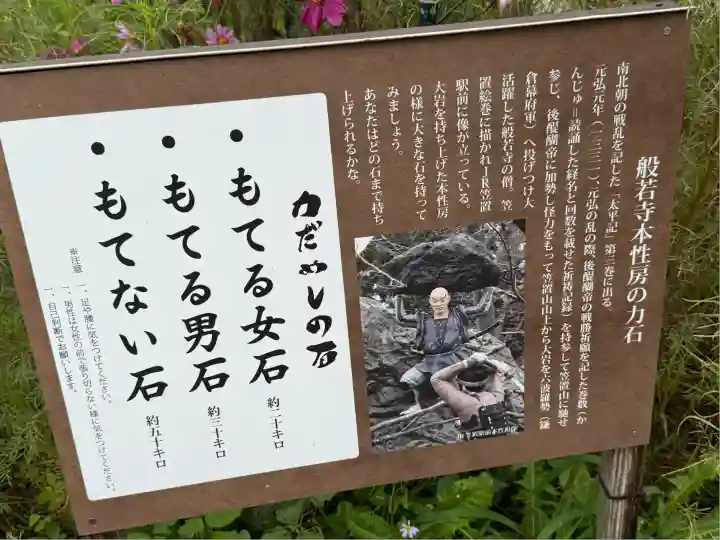 般若寺本性房の力石
南北朝の戦乱を記した「太平記」第三巻に出る。
元弘元年(一三三一)、元弘の乱の際、後醍醐帝の戦勝祈願を記した巻数(か
んじゅ=読誦した経名と回数を載せた祈祷記録)を持参して笠置山に馳せ
参じ、後醍醐帝に加勢し怪力をもって笠置山山上から大岩を六波羅勢(鎌
倉幕府軍)へ投げつけ大
活躍した般若寺の僧。笠
置絵巻に描かれJR笠置
駅前に像が立っている。
大岩を持ち上げた本性房
の様に大きな石を持って
みましょう。
あなたはどの石まで持ち
上げられるかな。
力だめしの石
• もてる女石 約二十キロ
• もてる男石 約三十キロ
• もてない石 約五十キロ
※注意 一、足や腰に気をつけてください。
一、男性は女性の前で張り切らない様に気をつけてください。
一、自己判断でお願いします。